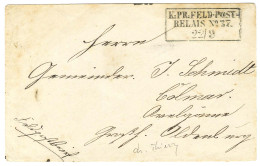 K:PR.FELD-POST-
RELAIS No 37.
25/9
Herrn
Gemeinder. J. Schmidt
Colmar.
Ovelgönne
Grßh. Oldenburg
Feldpostbrief